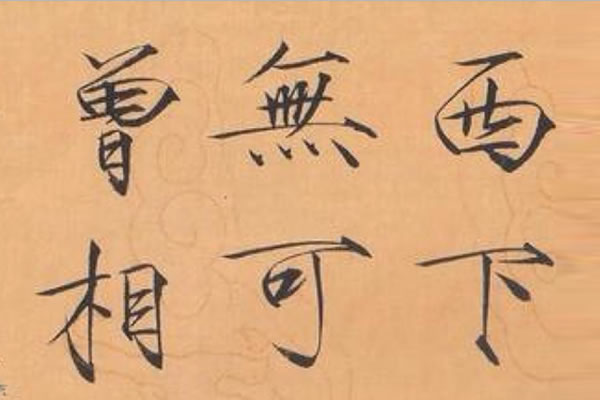 西下
無可
曾相